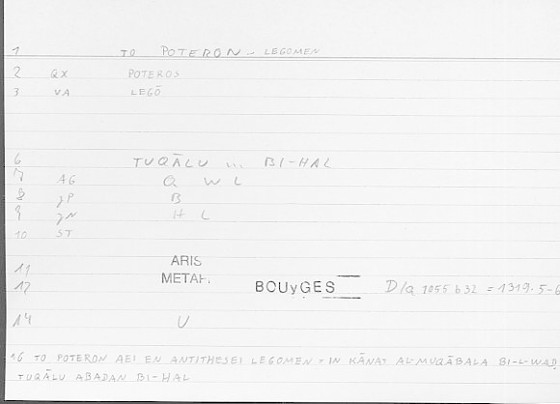 1 TO POTERON - LEGOMEN
2 QX POTEROS
3 VA LEGŌ
6 TUQĀLU ... BI-HAL
7 AG Q W L
8 JP B
9 JN H L
10 ST
11 ARIS
12 METAPH. BOUyGES D/a 1055 b 32 = 1319.5-6
14 U
16 TO POTERON AEI EN ANTITHESEI LEGOMEN = IN KĀNAT AL-MUQĀBALA BI-L-WAD
TUQĀLU ABADAN BI-HAL